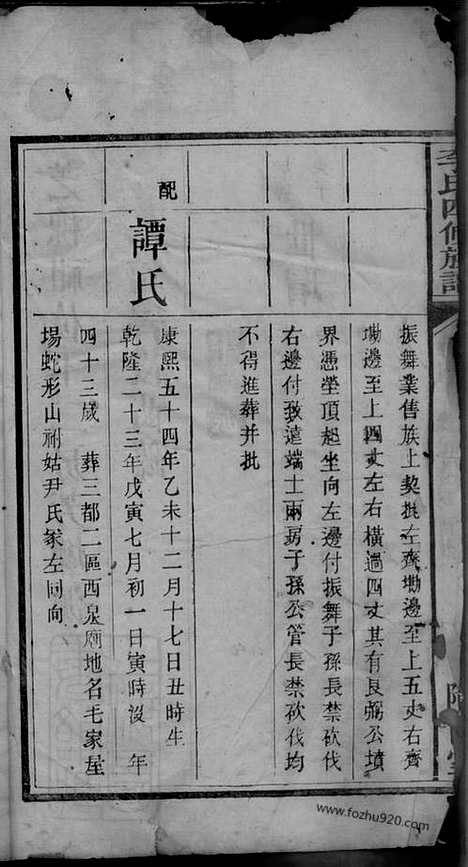 李氏四修族譜
振舞業售族上契批左齊坳邊至上五丈右齊
坳邊至上四丈左右橫過四丈其有良弼公墳
界憑塋頂起坐向左邊付振舞子孫長禁砍伐
右邊付致遠端士兩房子孫公管長禁砍伐均
不得進葬并批
配
譚氏
康熙五十四年乙未十二月十七日丑時生
乾隆二十三年戊寅七月初一日寅時沒 年
四十三歲 葬三都二區西泉廟地名毛家屋
場蛇形山祔姑尹氏冢左同向
www.fozhu920.com